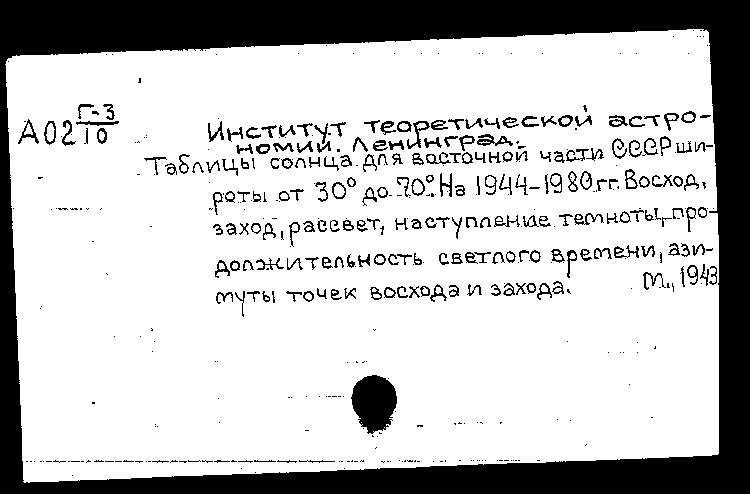 А02 Г-3/10
Институт теоретической астро-
номии. Ленинград.
Таблицы солнца для восточной части СССР ши-
роты от 30° до 70°. На 1944-1980 гг. Восход,
заход, рассвет, наступление темноты, про-
должительность светлого времени, ази-
муты точек восхода и захода. М., 1943